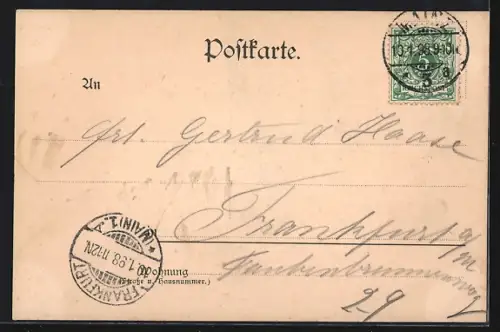 Postkarte.
10.1.98.9-10V.
5
3 a
An
Frl. Gertrud Haase
Frankfurt a/M
FRANKFURT (MAIN) 1.
1.98 11-12N.
Wohnung
(Straße u. Hausnummer.)
29